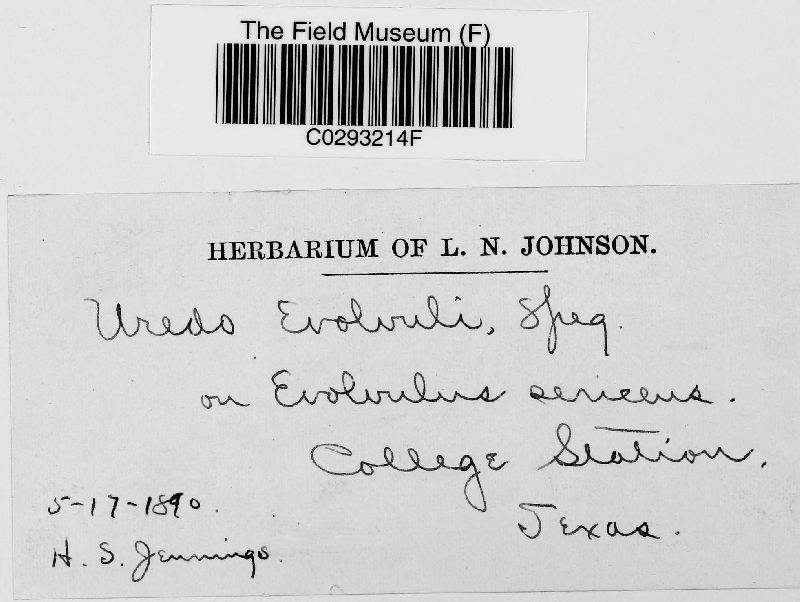 The Field Museum (F)
C0293214F
HERBARIUM OF L. N. JOHNSON.
Uredo Evolvuli, Speg.
on Evolvulus sericeus.
College Station,
Texas.
5-17-1890.
H. S. Jennings.